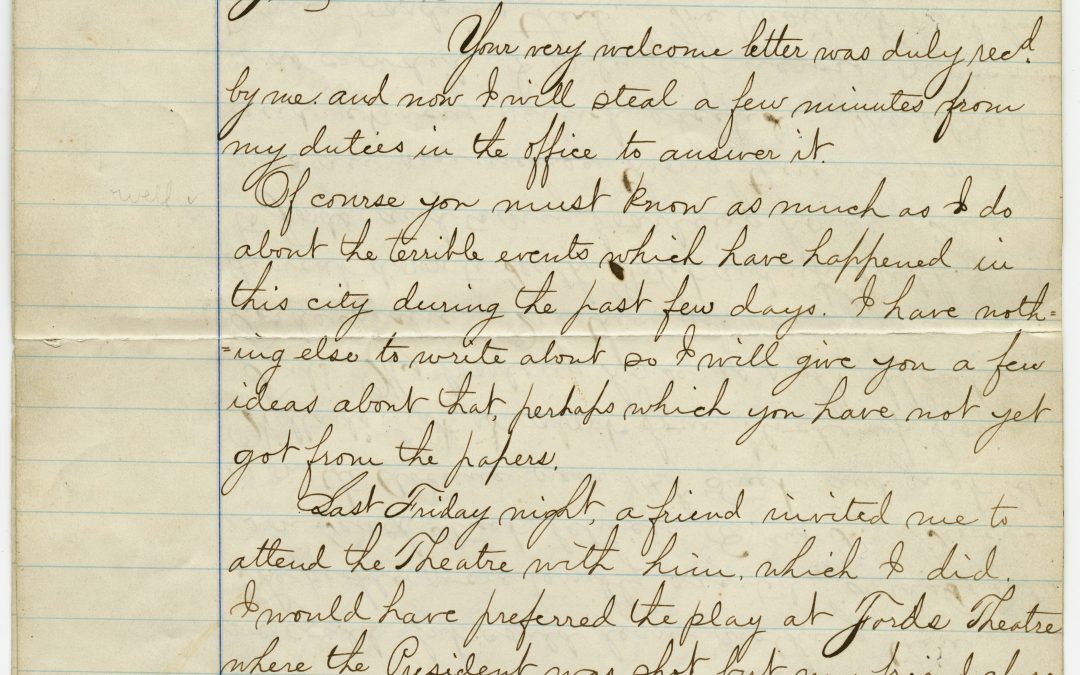 Your very welcome letter was duly recd.
by me. and now I will steal a few minutes from
my duties in the office to answer it.
Of course you must know as much as I do
about the terrible events which have happened in
this city during the past few days. I have noth=
=ing else to write about so I will give you a few
ideas about that, perhaps which you have not yet
got from the papers.
Last Friday night, a friend invited me to
attend the Theatre with him, which I did.
I would have preferred the play at Fords Theatre
where the President was shot but my friend chose